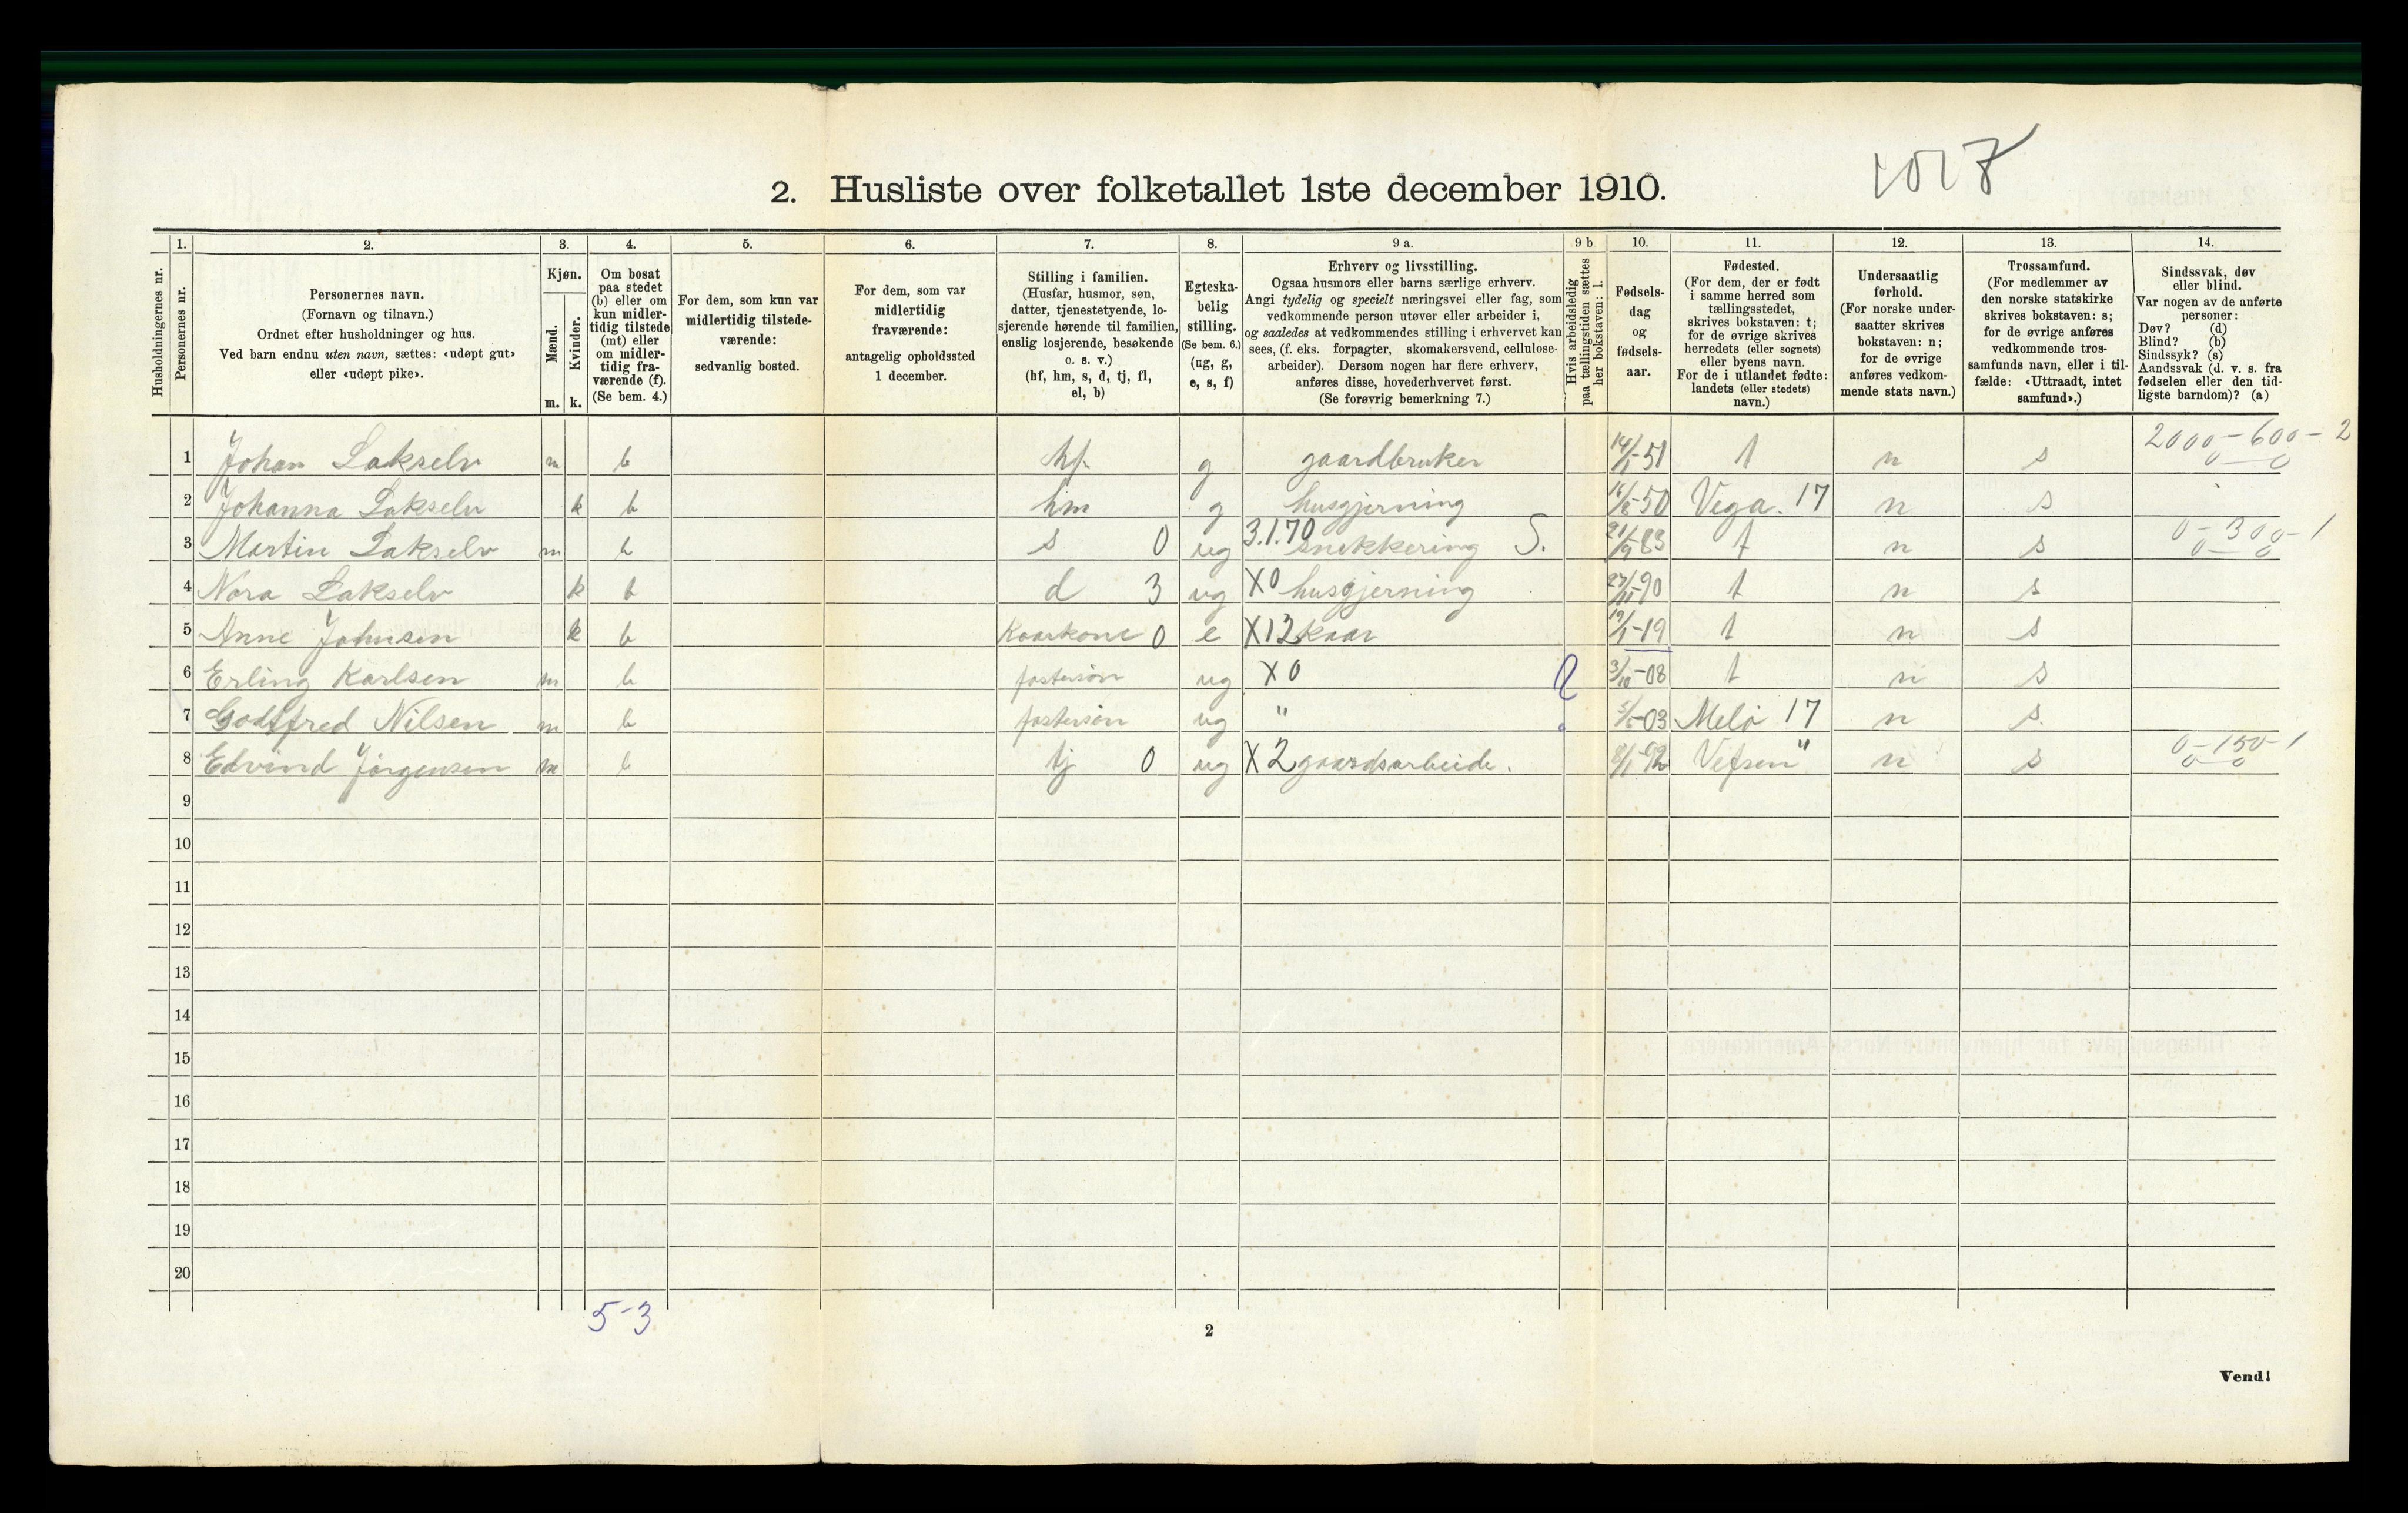 1017
2. Husliste over folketallet 1ste december 1910.
1. 2. 3. 4. 5. 6. 7. 8. 9 a. 9 b 10. 11. 12. 13. 14.
Husholdningernes nr.
Personernes nr.
Personernes navn.
(Fornavn og tilnavn.)
Ordnet efter husholdninger og hus.
Ved barn endnu uten navn, sættes: «udøpt gut»
eller «udøpt pike».
Kjøn.
Mænd.
Kvinder.
m. k.
Om bosat
paa stedet
(b) eller om
kun midler-
tidig tilstede
(mt) eller
om midler-
tidig fra-
værende (f).
(Se bem. 4.)
For dem, som kun var
midlertidig tilstede-
værende:
sedvanlig bosted.
For dem, som var
midlertidig
fraværende:
antagelig opholdssted
1 december.
Stilling i familien.
(Husfar, husmor, søn,
datter, tjenestetyende, lo-
sjerende hørende til familien,
enslig losjerende, besøkende
o. s. v.)
(hf, hm, s, d, tj, fl,
el, b)
Egteska-
belig
stilling.
(Se bem. 6.)
(ug, g,
e, s, f)
Erhverv og livsstilling.
Ogsaa husmors eller barns særlige erhverv.
Angi tydelig og specielt næringsvei eller fag, som
vedkommende person utøver eller arbeider i,
og saaledes at vedkommendes stilling i erhvervet kan
sees, (f. eks. forpagter, skomakersvend, cellulose-
arbeider). Dersom nogen har flere erhverv,
anføres disse, hovederhvervet først.
(Se forøvrig bemerkning 7.)
Hvis arbeidsledig
paa tællingstiden sættes
her bokstaven: l.
Fødsels-
dag
og
fødsels-
aar.
Fødested.
(For dem, der er født
i samme herred som
tællingsstedet,
skrives bokstaven: t;
for de øvrige skrives
herredets (eller sognets)
eller byens navn.
For de i utlandet fødte:
landets (eller stedets)
navn.)
Undersaatlig
forhold.
(For norske under-
saatter skrives
bokstaven: n;
for de øvrige
anføres vedkom-
mende stats navn.)
Trossamfund.
(For medlemmer av
den norske statskirke
skrives bokstaven: s;
for de øvrige anføres
vedkommende tros-
samfunds navn, eller i til-
fælde: «Uttraadt, intet
samfund».)
Sindssvak, døv
eller blind.
Var nogen av de anførte
personer:
Døv? (d)
Blind? (b)
Sindssyk? (s)
Aandssvak (d. v. s. fra
fødselen eller den tid-
ligste barndom)? (a)
2000-600-2
1 Johan Lakselv m b hf. g gaardbruker 14/1-51 t n s 0-0
2 Johanna Lakselv k b hm g husgjerning -50 Vega. 17 n s
3 Martin Lakselv m b s 0 ug 3.1.70 snekkering S. 21/9-83 t n s 0-300-1 0-0
4 Nora Lakselv k b d 3 ug X0 husgjerning 27/11-90 t n s
5 Anne Johnsen k b Kaarkone 0 e X12 kaar 19/1-19 t n s
6 Erling Karlsen m b fostersøn ug X0 3/10-08 t n s
7 Godtfred Nilsen m b fostersøn ug " -03 Melø 17 n s.
8 Edvind Jørgensen m b tj 0 ug X2 gaardsarbeide. 8/1-92 Vefsen " n s 0-150-1 0-0
9
10
11
12
13
14
15
16
17
18
19
20
5-3
2
Vend!